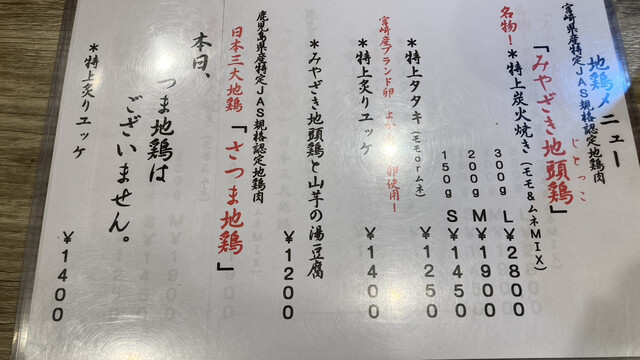 地鶏メニュー
宮崎県産特定JAS規格認定地鶏肉
「みやざき地頭鶏」
じとっこ
名物！＊特上炭火焼き（モモ&ムネMIX）
300g L¥2800
200g M¥1900
150g S¥1450
＊特上タタキ（モモorムネ）
¥1250
宮崎産ブランド卵 卵使用！
＊特上炙りユッケ
¥1400
＊みやざき地頭鶏と山芋の湯豆腐
¥1200
鹿児島県産特定JAS規格認定地鶏肉
日本三大地鶏「さつま地鶏」
本日、
つま地鶏は
ございません。
＊特上炙りユッケ
¥1400